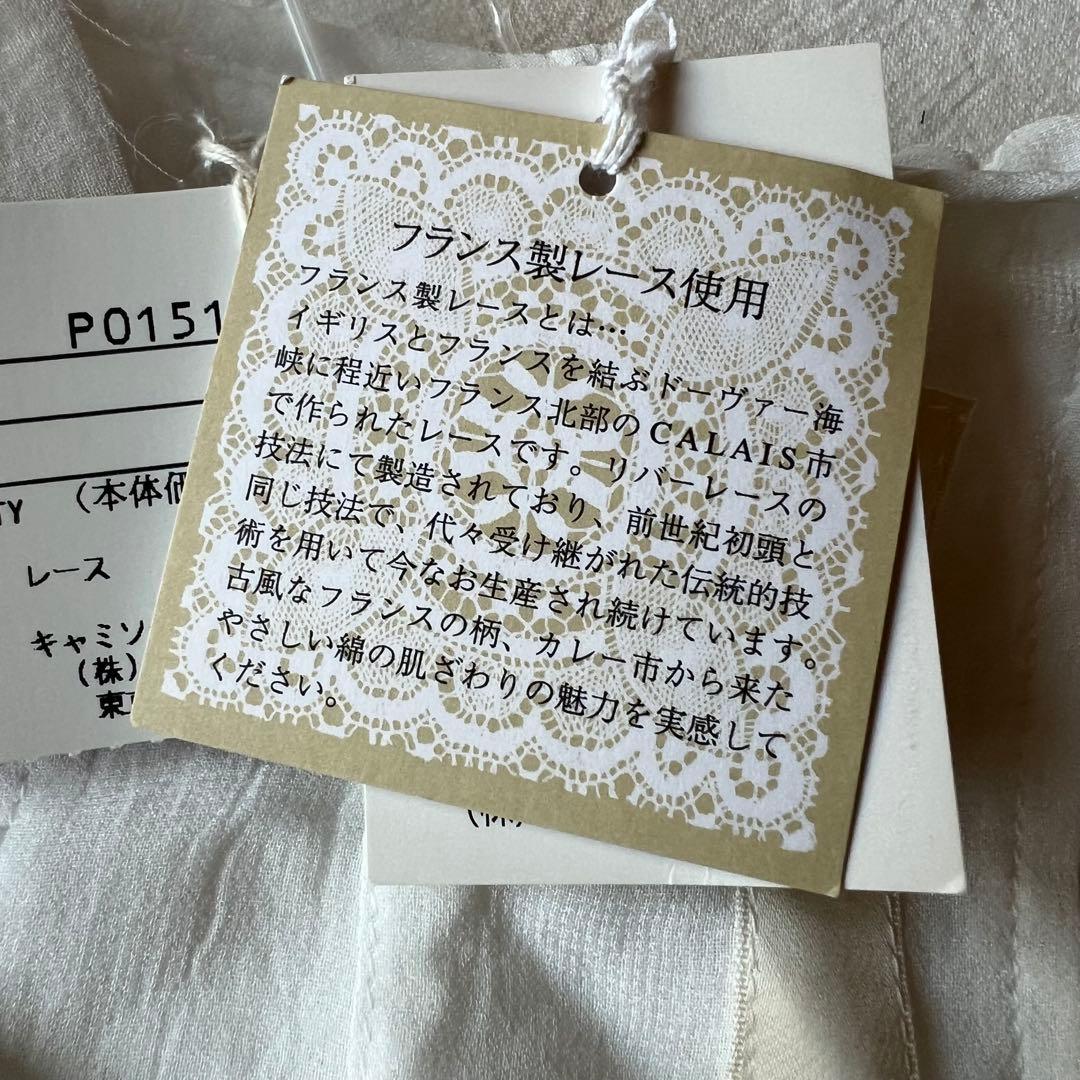 フランス製レース使用
フランス製レースとは…
イギリスとフランスを結ぶドーヴァー海
峡に程近いフランス北部のCALAIS市
で作られたレースです。リバーレースの
技法にて製造されており、前世紀初頭と
同じ技法で、代々受け継がれた伝統的技
術を用いて今なお生産され続けています。
古風なフランスの柄、カレー市から来た
やさしい綿の肌ざわりの魅力を実感して
ください。
P0151
TY (本体価
レース
キャミソ
(株)
東